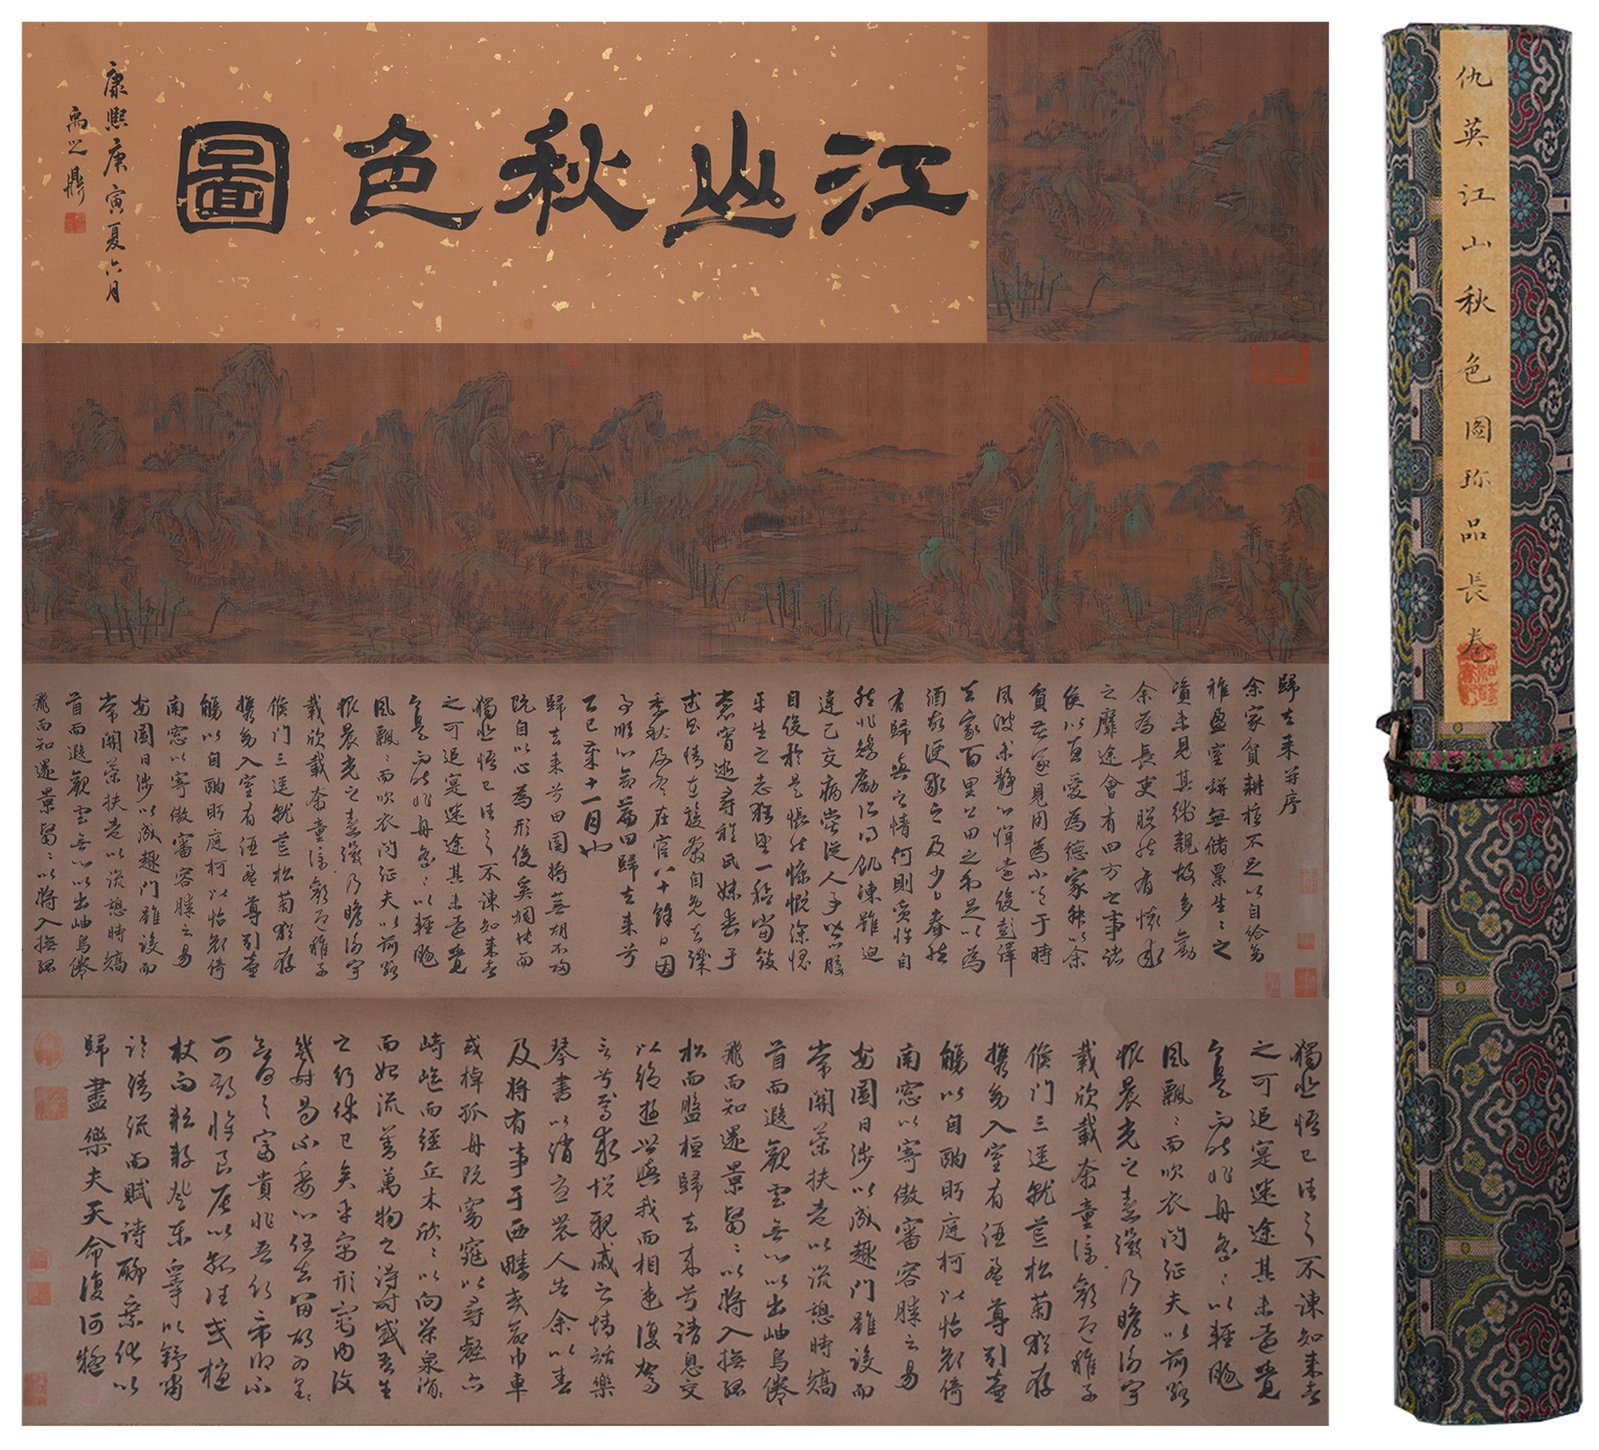 江山秋色圖
康熙庚寅夏六月
禹之鼎
仇英江山秋色圖珎品長卷
歸去来并序
余家貧耕植不足以自給幼
稚盈室缾無儲粟生〻之
資未見其術親故多勸
余為長吏脱然有懷求
之靡途會有四方之事諸
侯以惠愛為德家叔以余
貧苦遂見用為小邑于時
風波未静心惮遠役彭澤
去家百里公田之利足以為
酒故便求之及少日眷然
有歸與之情何則質性自
然非矯勵所得飢凍雖迫
違己交病嘗從人事皆口腹
自役於是悵然慷慨深愧
平生之志猶望一稔當斂
裳宵逝尋程氏妹喪于
武昌情在駿奔自免去職
仲秋及冬在官八十餘日因
事順心命篇曰歸去来兮
乙巳歲十一月也
歸去来兮田園將蕪胡不歸
既自以心為形役奚惆悵而
獨悲悟已往之不諫知来者
之可追寔迷途其未遠覺
今是而昨非舟遥〻以輕颺
風飄〻而吹衣問征夫以前路
恨晨光之熹微乃瞻衡宇
載欣載奔童僕歡迎稚子
候門三逕就荒松菊猶存
攜幼入室有酒盈尊引壺
觴以自酌眄庭柯以怡顏倚
南窓以寄傲審容膝之易
安園日涉以成趣門雖設而
常關策扶老以流憩時矯
首而遐觀雲無心以出岫鳥倦
飛而知還景翳〻以將入撫孤
獨悲悟已往之不諫知来者
之可追寔迷途其未遠覺
今是而昨非舟遥〻以輕颺
風飄〻而吹衣問征夫以前路
恨晨光之熹微乃瞻衡宇
載欣載奔童僕歡迎稚子
候門三逕就荒松菊猶存
攜幼入室有酒盈尊引壺
觴以自酌眄庭柯以怡顏倚
南窓以寄傲審容膝之易
安園日涉以成趣門雖設而
常關策扶老以流憩時矯
首而遐觀雲無心以出岫鳥倦
飛而知還景翳〻以將入撫孤
松而盤桓歸去来兮請息交
以絶遊世與我而相遺復駕
言兮焉求悦親戚之情話樂
琴書以消憂農人告余以春
及將有事于西疇或命巾車
或棹孤舟既窈窕以尋壑亦
崎嶇而經丘木欣〻以向榮泉涓〻
而始流善萬物之得時感吾生
之行休已矣乎寓形宇内復
幾時曷不委心任去留胡為遑〻
欲何之富貴非吾願帝鄉不
可期懷良辰以孤往或植
杖而耘耔登東皋以舒嘯
臨清流而賦詩聊乘化以
歸盡樂夫天命復何疑